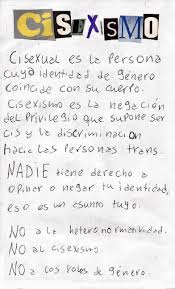 CiSEXISMO
Cisexual es la persona
cuya identidad de género
coincide con su cuerpo.
Cisexismo es la negación
del Privilegio que supone ser
cis y la discriminación
hacia las personas trans.
NADIE tiene derecho a
opinar o negar tu identidad,
eso es un asunto tuyo.
NO a la heteronormatividad.
NO al cisexismo.
NO a los roles de género.